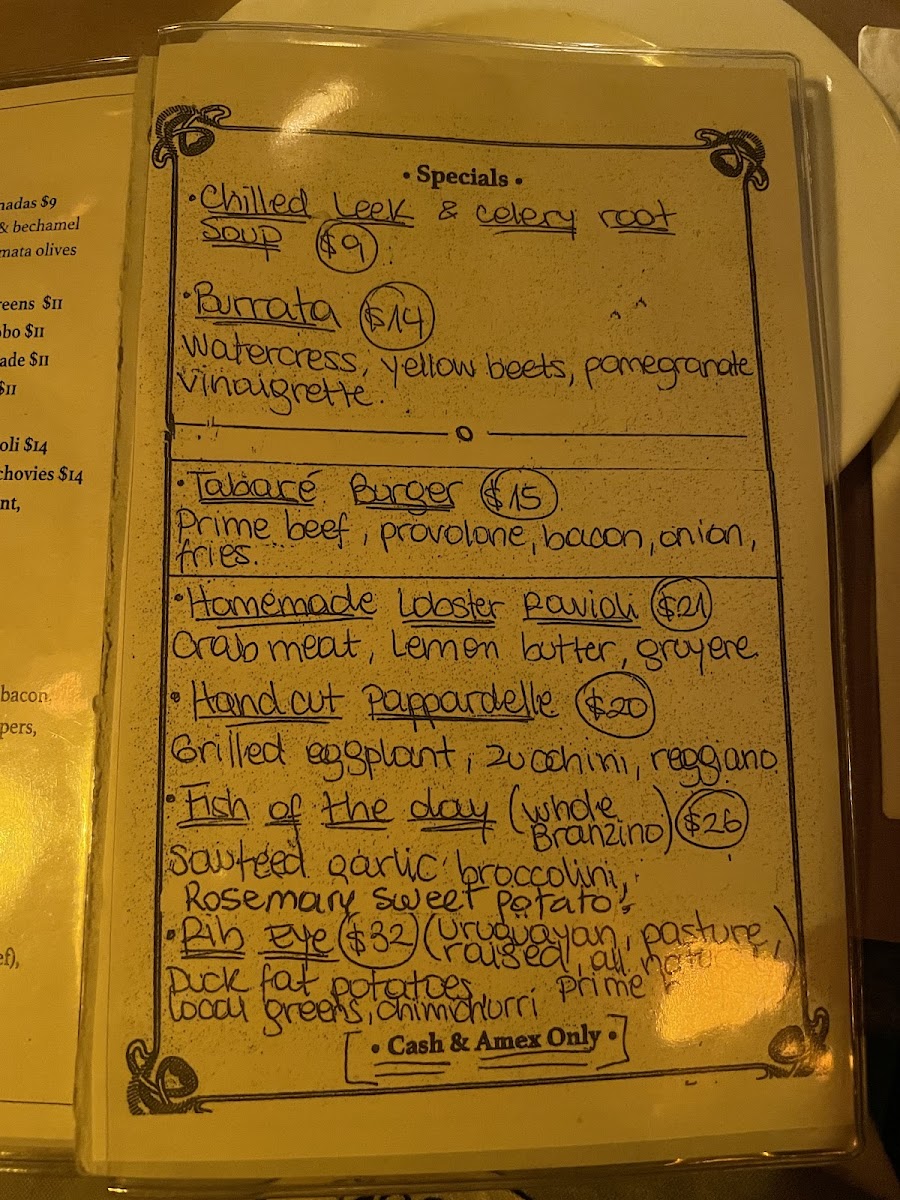 nadas $9
& bechamel
mata olives
reens $11
obo $11
ade $11
$11
oli $14
chovies $14
nt,
bacon
pers,
ef),
• Specials •
• Chilled Leek & celery root
Soup $9
• Burrata $14
Watercress, yellow beets, pomegranate
vinaigrette.
• Tabaré Burger $15
Prime beef, provolone, bacon, onion,
fries.
• Homemade Lobster Ravioli $21
Crab meat, Lemon butter, gruyere
• Handcut Pappardelle $20
Grilled eggplant, zucchini, reggiano
• Fish of the day (whole
Branzino) $26
Sauteed garlic broccolini,
Rosemary sweet potato.
• Rib Eye $32 (Uruguayan, pasture
raised, all natural,
Duck fat potatoes prime
local greens, chimichurri
• Cash & Amex Only •